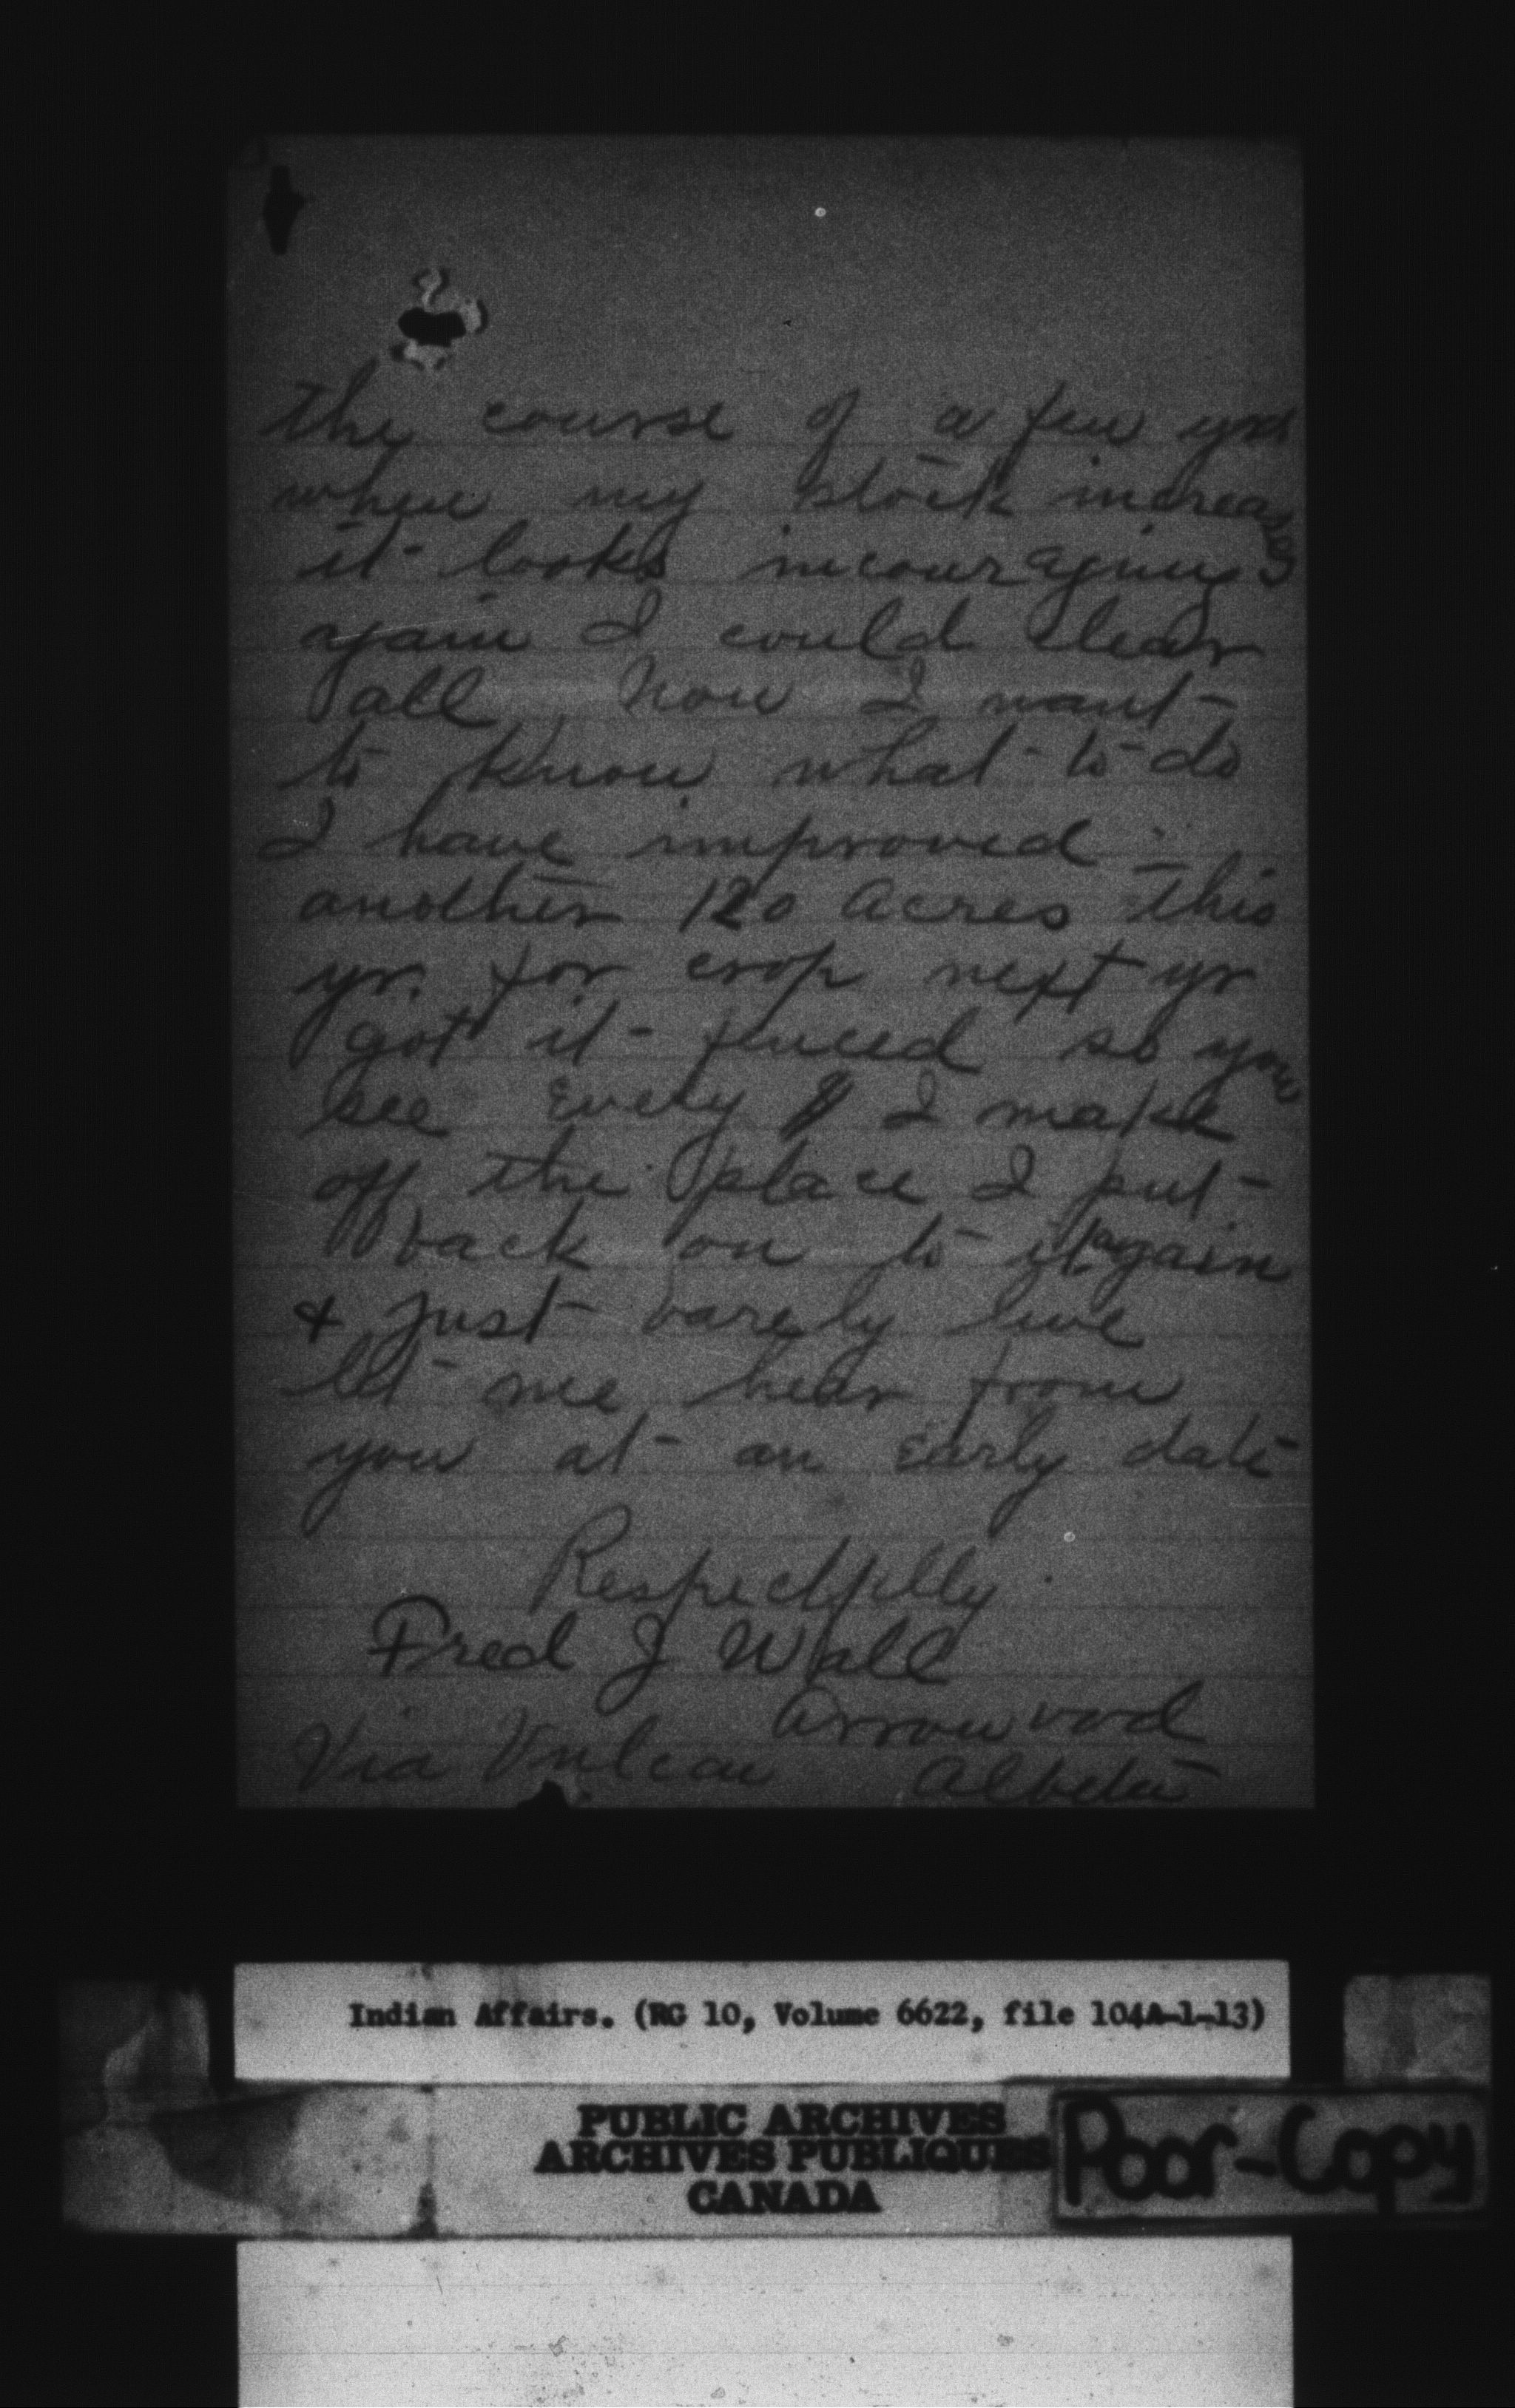 the course of a few yrs
when my stock increases
it looks incouraging
again I could clear
all now I want
to know what to do
I have improved
another 120 acres this
yr. for crop next yr
got it fenced so you
see Every $ I make
off the place I put
back on to it again
& just barely live
let me hear from
you at an Early date
Respectfully
Fred J Wall
Arrowwood
Via Vulcan Alberta
Indian Affairs. (RG 10, Volume 6622, file 104A-1-13)
PUBLIC ARCHIVES
ARCHIVES PUBLIQUES
CANADA
Poor-Copy